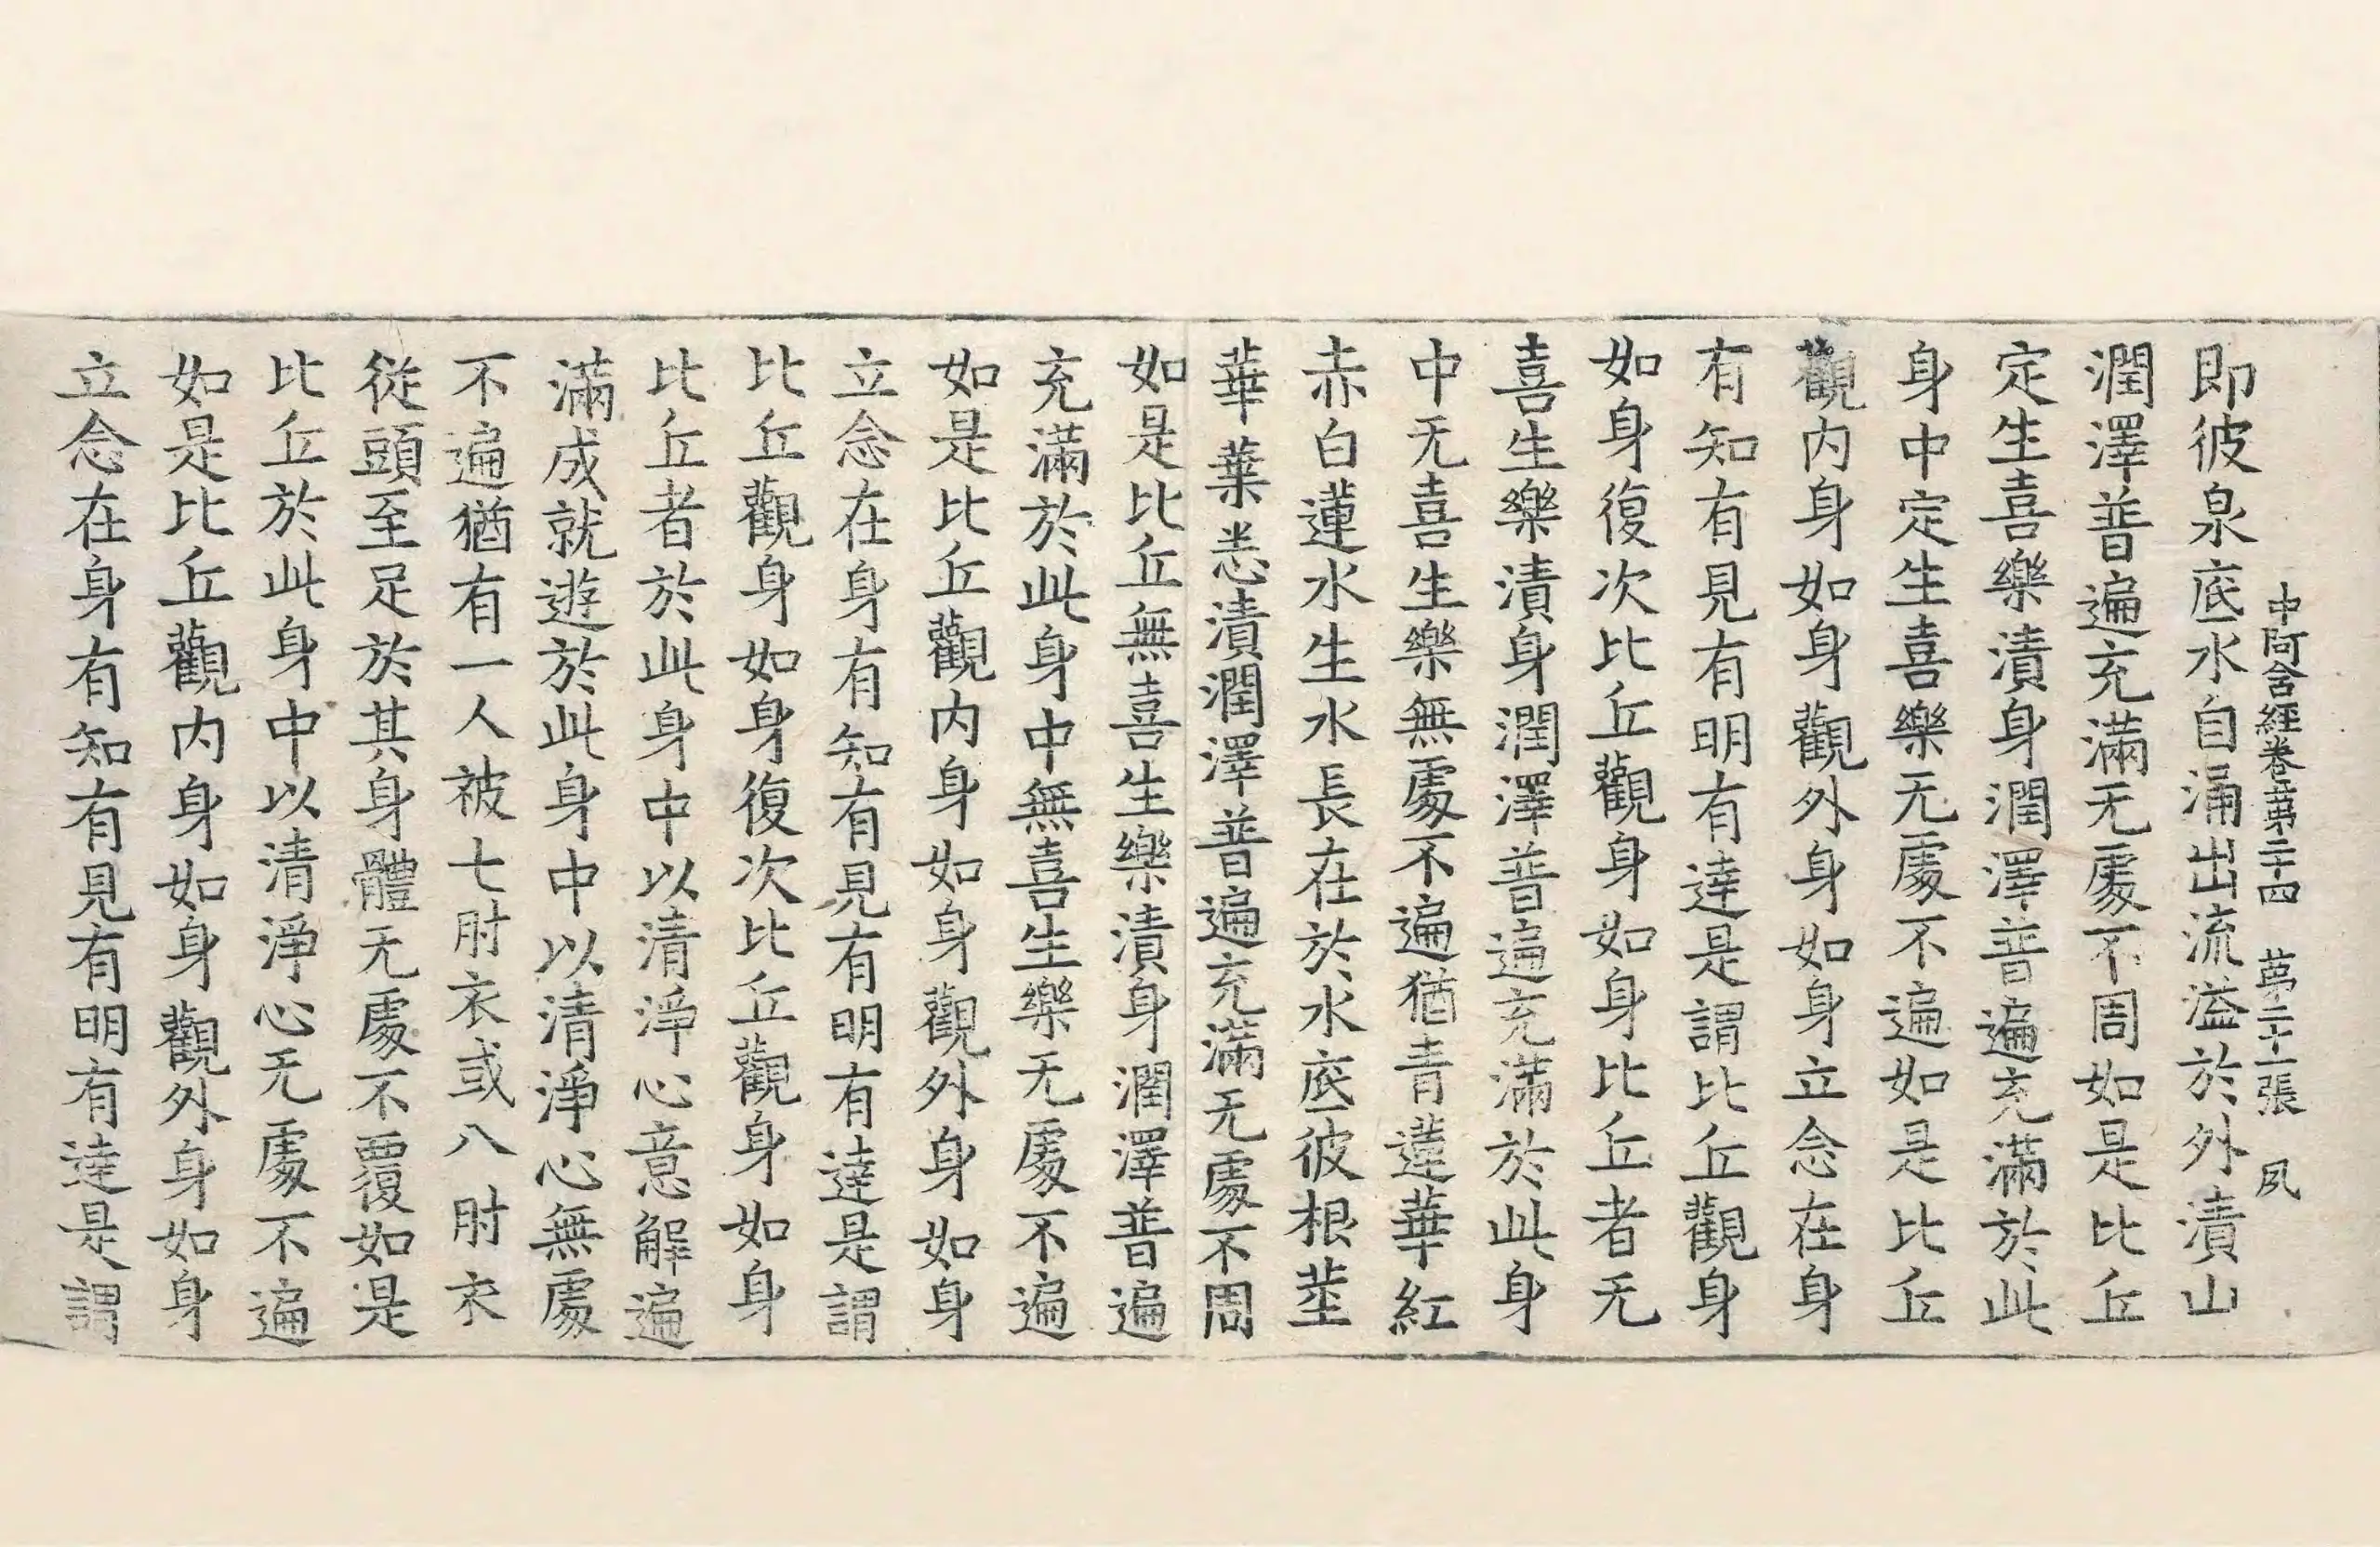 中阿含經卷第二十四　第二十一張　夙
即彼泉底水自涌出流溢於外漬山
潤澤普遍充滿无處不周如是比丘
定生喜樂漬身潤澤普遍充滿於此
身中定生喜樂无處不遍如是比丘
觀内身如身觀外身如身立念在身
有知有見有明有達是謂比丘觀身
如身復次比丘觀身如身比丘者无
喜生樂漬身潤澤普遍充滿於此身
中无喜生樂無處不遍猶青蓮華紅
赤白蓮水生水長在於水底彼根莖
華葉悉漬潤澤普遍充滿无處不周
如是比丘無喜生樂漬身潤澤普遍
充滿於此身中無喜生樂无處不遍
如是比丘觀内身如身觀外身如身
立念在身有知有見有明有達是謂
比丘觀身如身復次比丘觀身如身
比丘者於此身中以清淨心意解遍
滿成就遊於此身中以清淨心無處
不遍猶有一人被七肘衣或八肘衣
從頭至足於其身體无處不覆如是
比丘於此身中以清淨心无處不遍
如是比丘觀内身如身觀外身如身
立念在身有知有見有明有達是謂